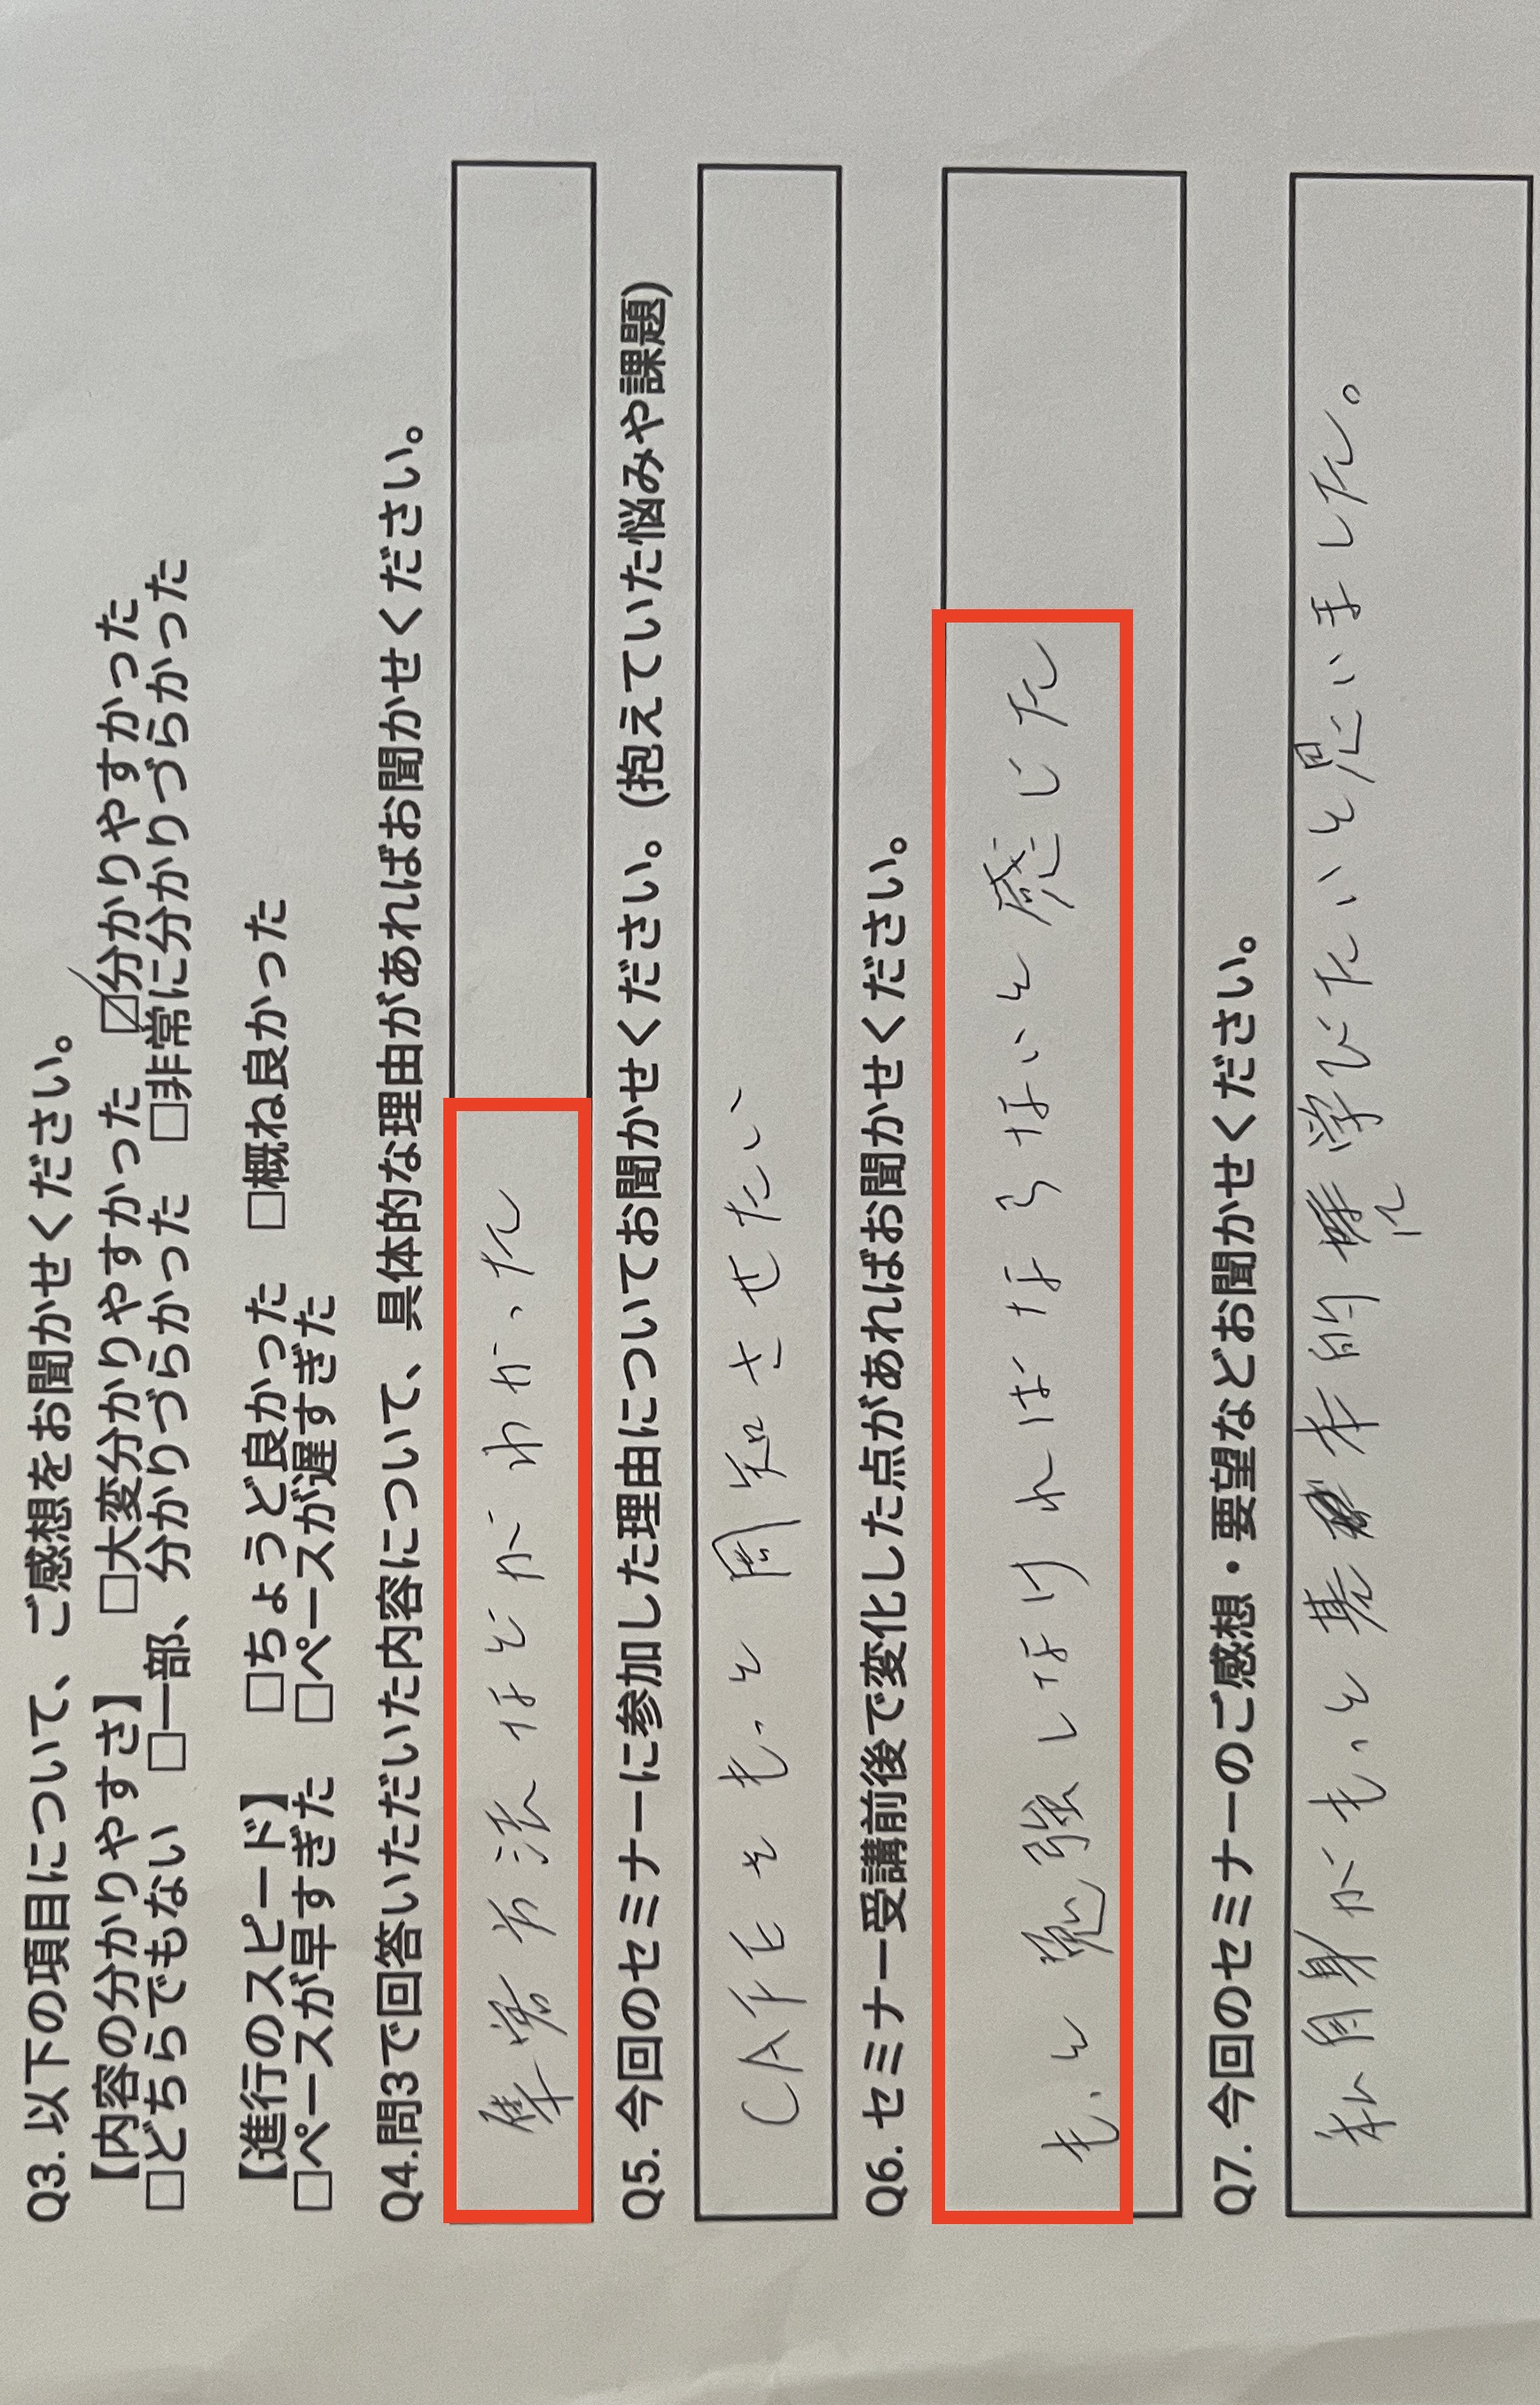 Q3. 以下の項目について、ご感想をお聞かせください。
【内容の分かりやすさ】 □大変分かりやすかった ☑分かりやすかった
□どちらでもない □一部、分かりづらかった □非常に分かりづらかった
【進行のスピード】 □ちょうど良かった □概ね良かった
□ペースが早すぎた □ペースが遅すぎた
Q4.問3で回答いただいた内容について、具体的な理由があればお聞かせください。
障害方法などがわかった
Q5. 今回のセミナーに参加した理由についてお聞かせください。(抱えていた悩みや課題)
CAチモをもっと周知させたい
Q6. セミナー受講前後で変化した点があればお聞かせください。
もっと勉強しなければならないと感じた
Q7. 今回のセミナーのご感想・要望などお聞かせください。
私自身がもっと基本的に学びたいと思いました。